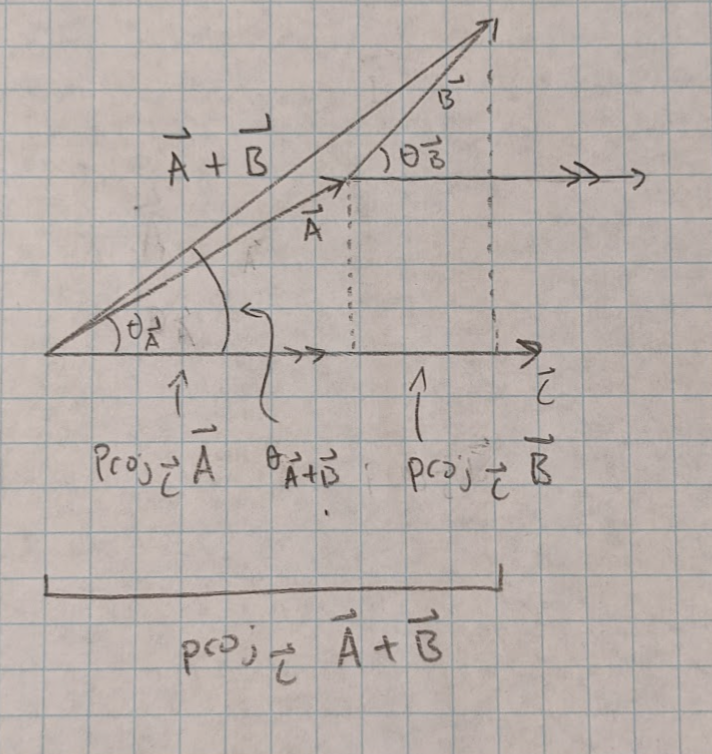 B⃗
A⃗ + B⃗
θB⃗
A⃗
θA⃗
C⃗
proj C⃗ A⃗
θA⃗+B⃗
proj C⃗ B⃗
proj C⃗ A⃗ + B⃗